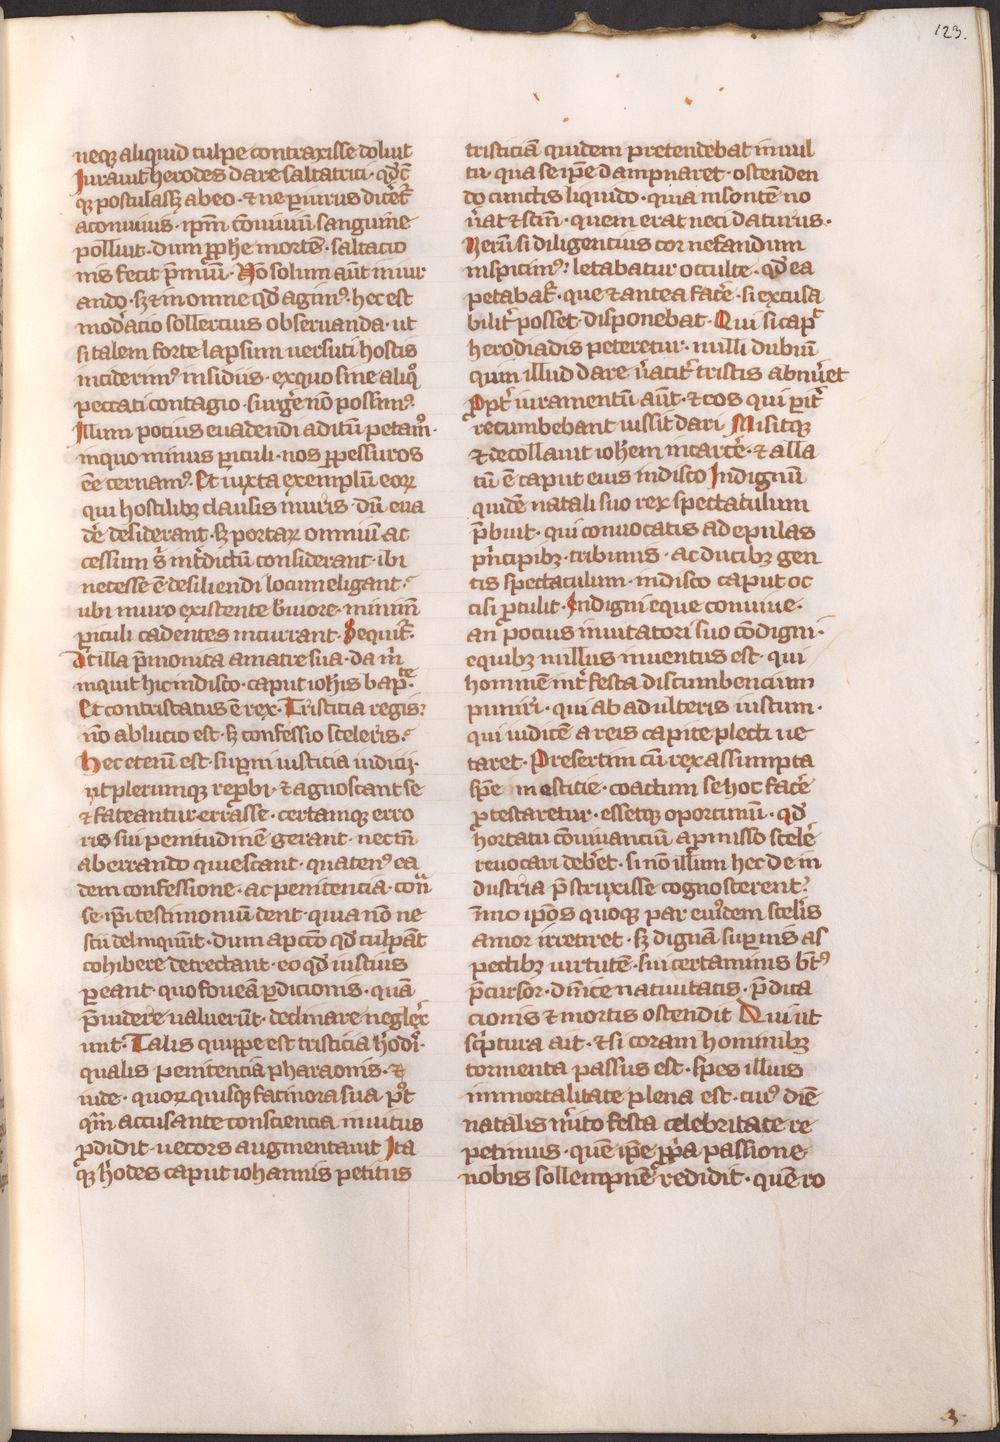 123.
neqꝫ aliquid culpe contraxisse doluit
Iurauit herodes dare saltatrici · qd̄cū
qꝫ postulassꝫ ab eo · ⁊ ne ꝑiurus dicer̄t᷑
a conuiuis · ipm̄ conuiuiū sanguine
polluit · dum ꝓphe mortē · saltacio
nis fecit p̄miū · Nō solum aūt in iur
ando · sꝫ ⁊ in omne qd̄ agimꝰ · hec est
mod̓acio sollercius obseruanda · ut
si talem forte lapsum uersuti hostis
inciderimꝰ insidiis · ex quo sine aliqͦ
peccati contagio · surge̓ nō possumꝰ.
Illum pocius euadendi aditū petamꝰ ·
in quo minus ꝑiculi · nos ꝓpessuros
ēe cernamꝰ · Et iuxta exemplū eoꝝ
qui hostilibꝫ clausis muris · dū eua
de̓ desiderant · sꝫ portaꝝ omniū ac
cessum s̄ int̓dictū considerant · ibi
necesse ē desiliendi locum eligant ·
ubi muro existente b̓uiore · minimū
ꝑiculi cadentes incurrant · Sequit᷑.
At illa p̄monita a matre sua · da m̄
inquit hic in disco · caput ioh̄is bapͭᵉ.
Et contristatus ē rex · Tristicia regis
nō ablucio est · sꝫ confessio sceleris.
Hec etenī est · suꝑni iusticia iudicij ·
ut plerumqꝫ reꝓbi · ⁊ agnoscant se
⁊ fateantur errasse · certamqꝫ erro
ris sui penitudinē gerant · nec tn̄
aberrando quiescant · quatenꝰ ea
dem confessione · ac penitencia · cont̓
se · ipi testimoniū dent · quia nō ne
scii delinquūt · dum a pctō qd̄ culpāt
cohibere detrectant · eo qd̄ iustius
ꝑeant · quo foueā ꝑdicionis · quā
p̄uidere ualuerūt · declinare neglex̓
unt · Talis quippe est tristicia h̓odi̓ ·
qualis penitencia pharaonis · ⁊
iude · quoꝝ quisqꝫ facinora sua · pꝰt
qm̄ accusante consciencia inuitus
ꝓdidit · uecors augmentauit Ita
qꝫ h̓odes caput iohannis petitus
tristiciā quidem pretendebat in uul
tu · qua se ip̄e dampnaret · ostenden
do cunctis liquido · quia insontē no
u̓at ⁊ sctm̄ · quem erat neci daturus ·
Verū si diligencius cor nefandum
inspicimꝰ · letabatur occulte · qd̄ ea
petabat᷑ · que ⁊ antea face̓ · si excusa
bilit̓ posset · disponebat · Qui si capᷓ
herodiadis peteretur · nulli dubiū
quin illud dare u̓acit̓ tristis abnu̓et
Ꝓpt̓ iuramentū aūt · ⁊ eos qui ꝑit̓
recumbebant iussit dari Misitqꝫ
⁊ decollauit ioh̄em in carce̓ · ⁊ alla
tū ē caput eius in disco Indignū
quidē natali suo rex spectaculum
p̄buit · qui conuocatis ad epulas
pͥncipibꝫ · tribunis · ac ducibꝫ gen
tis spectaculum · in disco caput oc
cisi ꝓtulit · Indigni eque conuiue ·
an pocius inuitatori suo cōdigni ·
e quibꝫ nullus inuentus est · qui
hominē int̓ festa discumbencium
puniri · qui ab adulteris iustum ·
qui iudicē a reis capite plecti ue
taret · Presertim cū rex assumpta
spē mesticie · coactum se hoc face̓
ꝓtestaretur · essetqꝫ oportunū · qd̄
hortatu conuiuanciū a ꝓmisso scele̓
reuocari deb̓et · si nō illum hec de in
dustria p̄struxisse cognoscerent ·
īmo ip̄os quoqꝫ par eiꝰdem scel̓is
amor irretiret · Sꝫ dignā suꝑnis as
pectibꝫ uirtutē · sui certaminis bt̄ꝰ
p̄cursor · dn̄ice natiuitatis · p̄dica
cionis ⁊ mortis ostendit Qui ut
scͥptura ait · ⁊ si coram hominibꝫ
tormenta passus est · spes illius
immortalitate plena est · cuiꝰ diē
natalis m̓ito festa celebritate re
petimus · quē ip̄e ꝓp̓a passione
nobis sollempnē redidit · quē ro
3